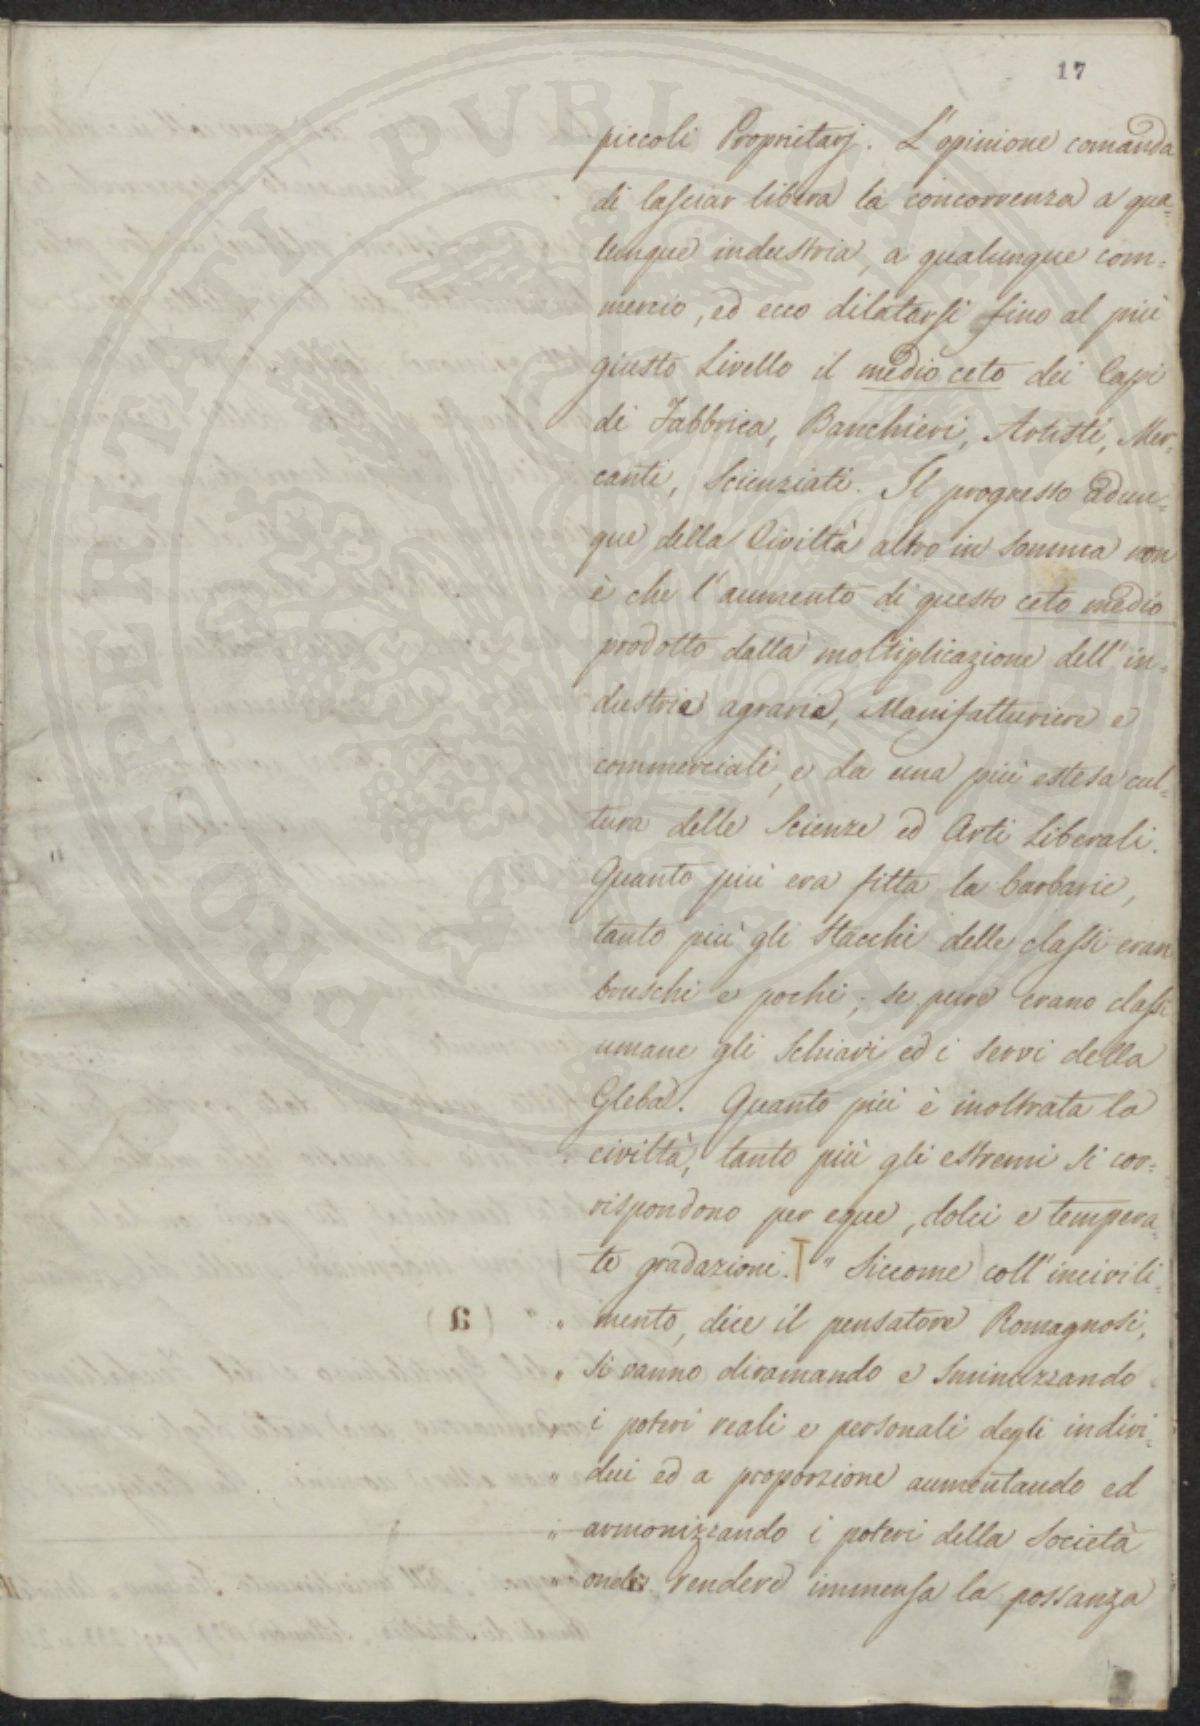 17
piccoli Proprietarj. L'opinione comanda
di lasciar libera la concorrenza a qua=
lunque industria, a qualunque com=
mercio, ed ecco dilatarsi fino al più
giusto Livello il medio ceto dei Capi
di Fabbrica, Banchieri, Artisti, Mer=
canti, Scienziati. Il progresso adun=
que della Civiltà altro in somma non
è che l'aumento di questo ceto medio
prodotto dalla moltiplicazione dell'in=
dustrie agrarie, Manifatturiere e
commerciali, e da una più estesa cul=
tura delle Scienze ed Arti Liberali.
Quanto più era fitta la barbarie,
tanto più gli stacchi delle classi eran
bruschi e pochi; se pure erano classi
umane gli Schiavi ed i servi della
Gleba. Quanto più è inoltrata la
civiltà, tanto più gli estremi si cor=
rispondono per eque, dolci e tempera=
te gradazioni. " Siccome coll'incivili=
" mento, dice il pensatore Romagnosi,
" si vanno diramando e sminuzzando
" i poteri reali e personali degli indivi=
" dui ed a proporzione aumentando ed
" armonizzando i poteri della Società
" onde rendere immensa la possanza
PROSPERITATI PUBLICAE